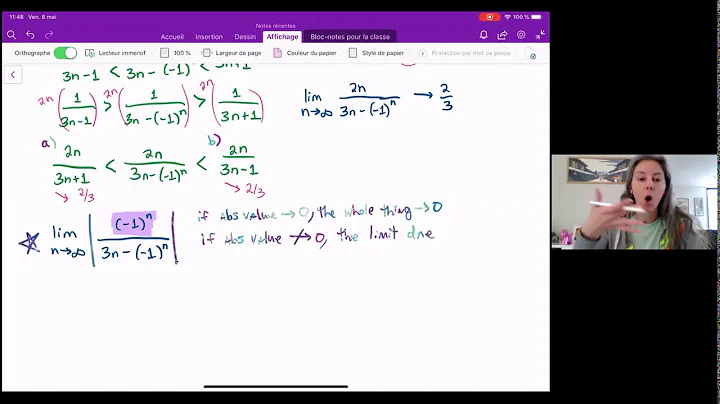 11:48 Ven. 8 mai
100 %
Notes récentes
Accueil Insertion Dessin Affichage Bloc-notes pour la classe
Orthographe Lecteur immersif 100 % Largeur de page Couleur du papier Style de papier Protection par mot de passe
3n-1 < 3n-(-1)ⁿ < 3n+1
2n(1/(3n-1)) > 2n(1/(3n-(-1)ⁿ)) > 2n(1/(3n+1))
lim n→∞ 2n/(3n-(-1)ⁿ) → 2/3
a) b)
2n/(3n+1) < 2n/(3n-(-1)ⁿ) < 2n/(3n-1)
→ 2/3 → 2/3
lim n→∞ |(-1)ⁿ/(3n-(-1)ⁿ)|
if abs value → 0, the whole thing → 0
if abs value ↛ 0, the limit dne